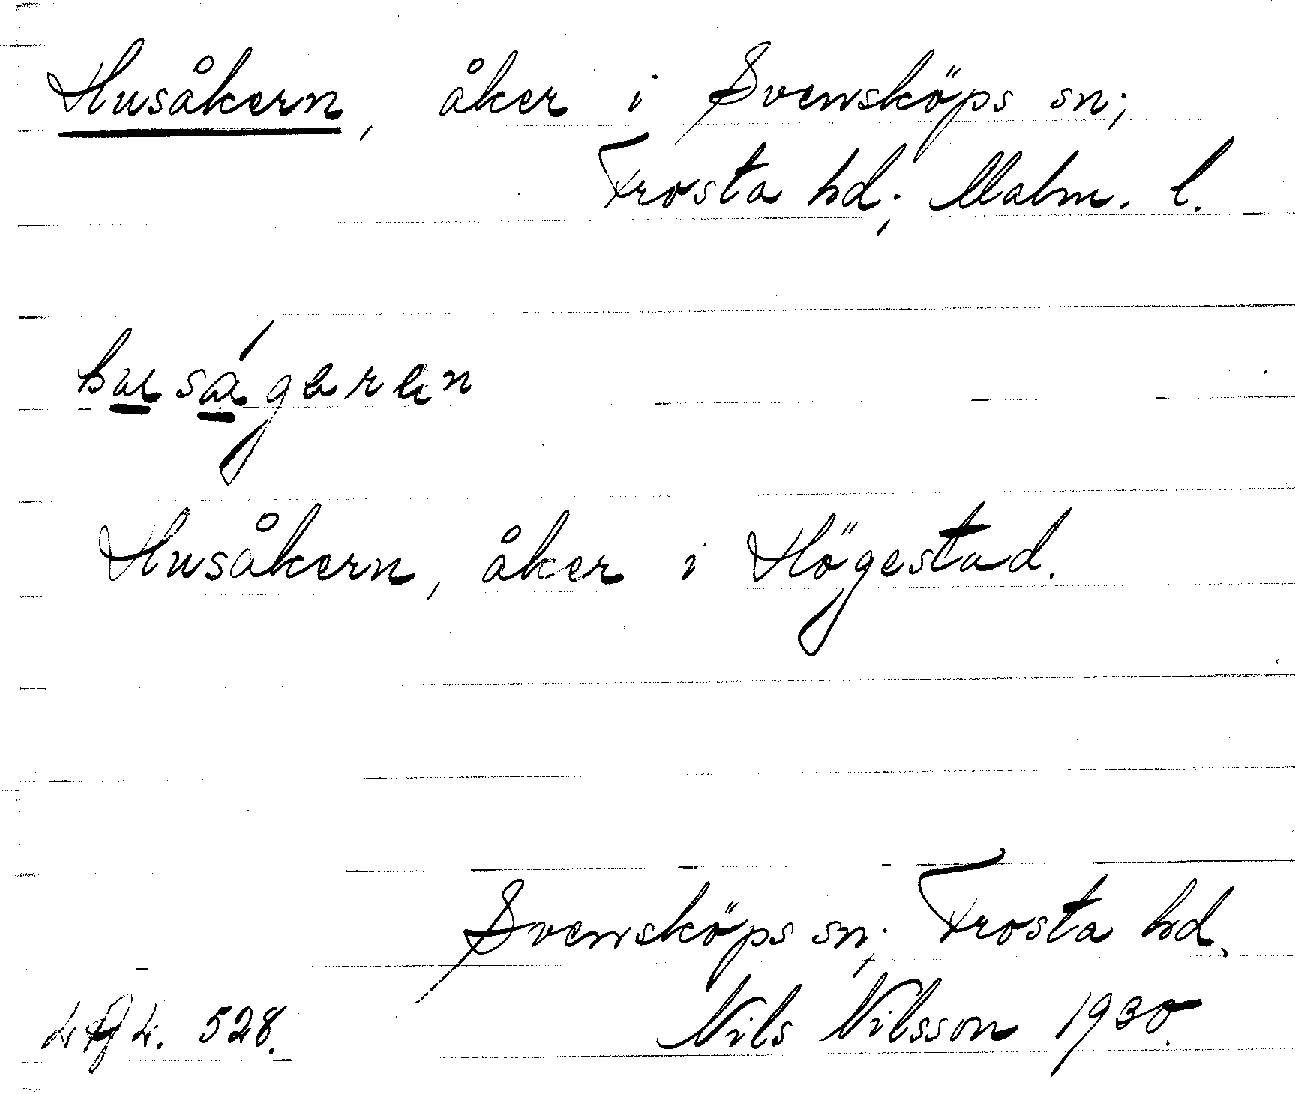 Husåkern, åker i Svensköps sn;
Frosta hd; Malm. l.
Husåkern, åker i Högestad.
Svensköps sn; Frosta hd.
Nils Nilsson 1930.
528.